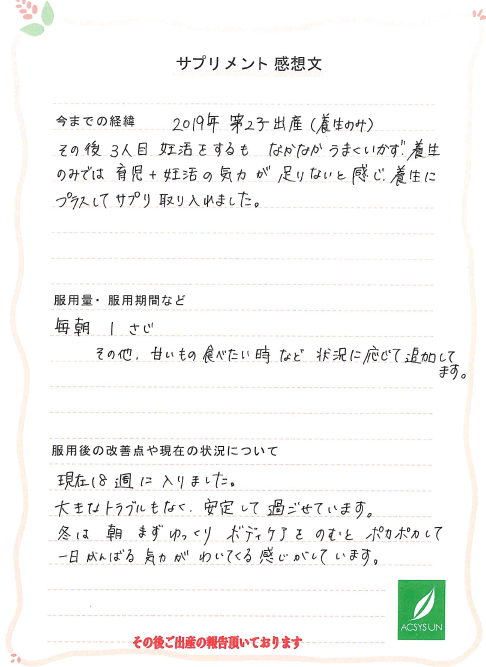 サプリメント 感想文
今までの経緯　2019年 第2子出産（養生のみ）
その後 3人目 妊活をするも なかなか うまくいかず、養生
のみでは 育児+妊活の気力が 足りないと感じ、養生に
プラスして サプリ 取り入れました。
服用量・服用期間など
毎朝 1 さじ
その他、甘いもの食べたい時 など 状況に応じて追加して
ます。
服用後の改善点や現在の状況について
現在18週に入りました。
大きなトラブルもなく、安定して過ごせています。
冬は 朝 まず ゆっくり ボディケアをのむと ポカポカして
一日がんばる気力が わいてくる感じがしています。
ACSYSUN
その後ご出産の報告頂いております